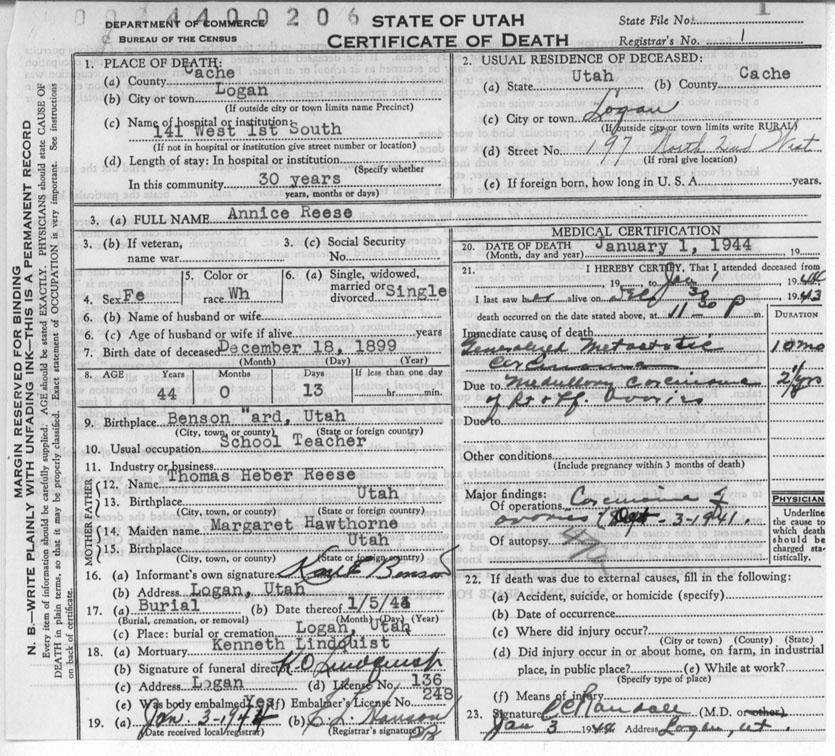 0044400206 1
DEPARTMENT OF COMMERCE
BUREAU OF THE CENSUS
STATE OF UTAH
CERTIFICATE OF DEATH
State File No.
Registrar's No. 1
MARGIN RESERVED FOR BINDING
N. B.—WRITE PLAINLY WITH UNFADING INK—THIS IS A PERMANENT RECORD
Every item of information should be carefully supplied. AGE should be stated EXACTLY. PHYSICIANS should state CAUSE OF
DEATH in plain terms, so that it may be properly classified. Exact statement of OCCUPATION is very important. See instructions
on back of certificate.
1. PLACE OF DEATH:
(a) County Cache
(b) City or town Logan
(If outside city or town limits name Precinct)
(c) Name of hospital or institution:
141 West 1st South
(If not in hospital or institution give street number or location)
(d) Length of stay: In hospital or institution
(Specify whether
In this community 30 years
years, months or days)
2. USUAL RESIDENCE OF DECEASED:
(a) State Utah (b) County Cache
(c) City or town Logan
(If outside city or town limits write RURAL)
(d) Street No. 197 North 2nd West
(If rural give location)
(e) If foreign born, how long in U. S. A. years.
3. (a) FULL NAME Annice Reese
3. (b) If veteran,
name war
3. (c) Social Security
No.
4. Sex Fe
5. Color or
race Wh
6. (a) Single, widowed,
married or
divorced Single
6. (b) Name of husband or wife
6. (c) Age of husband or wife if alive years
7. Birth date of deceased December 18, 1899
(Month) (Day) (Year)
8. AGE Years Months Days If less than one day
44 0 13 hr. min.
9. Birthplace Benson "ard, Utah
(City, town, or county) (State or foreign country)
10. Usual occupation School Teacher
11. Industry or business
FATHER
12. Name Thomas Heber Reese
13. Birthplace Utah
(City, town, or county) (State or foreign country)
MOTHER
14. Maiden name Margaret Hawthorne
15. Birthplace Utah
(City, town, or county) (State or foreign country)
16. (a) Informant's own signature Benson
(b) Address Logan, Utah
17. (a) Burial (b) Date thereof 1/5/44
(Burial, cremation, or removal) (Month) (Day) (Year)
(c) Place: burial or cremation Logan, Utah
18. (a) Mortuary Kenneth Lindquist
(b) Signature of funeral director K O Lindquist
(c) Address Logan (d) License No. 136
(e) Was body embalmed Yes (f) Embalmer's License No. 248
19. (a) Jan. 3-1944 (b)
(Date received local registrar) (Registrar's signature)
MEDICAL CERTIFICATION
20. DATE OF DEATH January 1, 1944
(Month, day and year) 19
21. I HEREBY CERTIFY, That I attended deceased from
19 to Jan 1 1944
I last saw her alive on Dec 30 1943
death occurred on the date stated above, at 11-30 P m.
DURATION
Immediate cause of death
Generalized Metastatic 10 mo
Carcinoma
Due to Medullary Carcinoma 2½ yrs
of Rt & Lf. Ovaries
Due to
Other conditions
(Include pregnancy within 3 months of death)
Major findings:
Of operations Carcinoma of
ovaries (Sept - 3-1941.
Of autopsy
PHYSICIAN
Underline
the cause to
which death
should be
charged sta-
tistically.
22. If death was due to external causes, fill in the following:
(a) Accident, suicide, or homicide (specify)
(b) Date of occurrence
(c) Where did injury occur?
(City or town) (County) (State)
(d) Did injury occur in or about home, on farm, in industrial
place, in public place? (e) While at work?
(Specify type of place)
(f) Means of injury
23. Signature Randall (M.D. or other)
Jan 3 1944 Address Logan, ut.